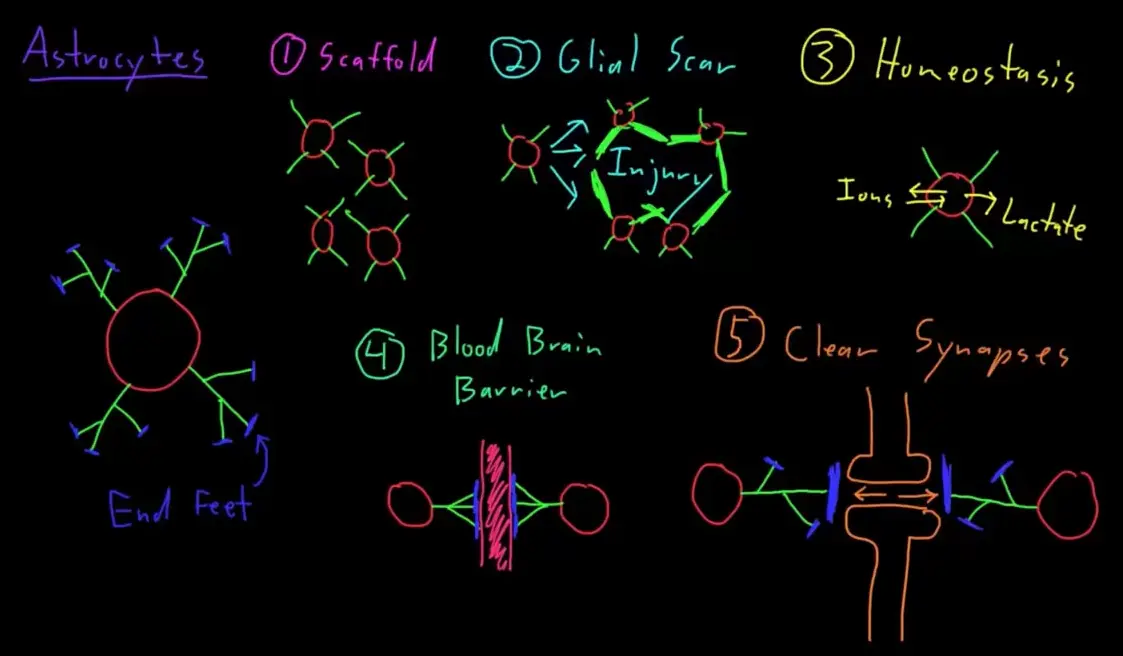 Astrocytes
① Scaffold
② Glial Scar
Injury
③ Homeostasis
Ions
Lactate
④ Blood Brain
Barrier
⑤ Clear Synapses
End Feet